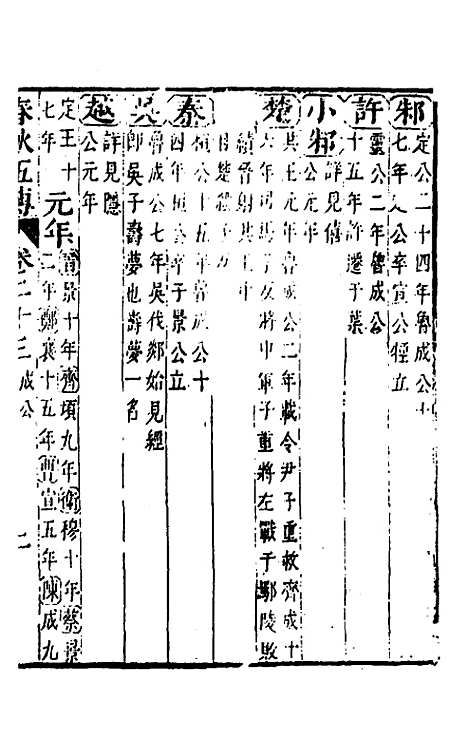 邾定公二十四年魯成公十
七年定公卒宣公牼立
許靈公二年魯成公
十五年許遷于葉
小邾詳見僖
公元年
楚共王元年魯成公二年楚令尹子重救齊成十
六年司馬子反將中軍子重將左戰于鄢陵敗
績晉射共王中
目楚
秦桓公十五年魯成公十
四年桓公卒子景公立
吳魯成公七年吳伐郯始見經
即吳子壽夢也壽夢一名
越詳見隱
公元年
定王十
七年
元年晉景十年齊頃九年衛穆十年蔡景
二年鄭襄十五年曹宣五年陳成九
春秋五傳 卷二十三 成公 二